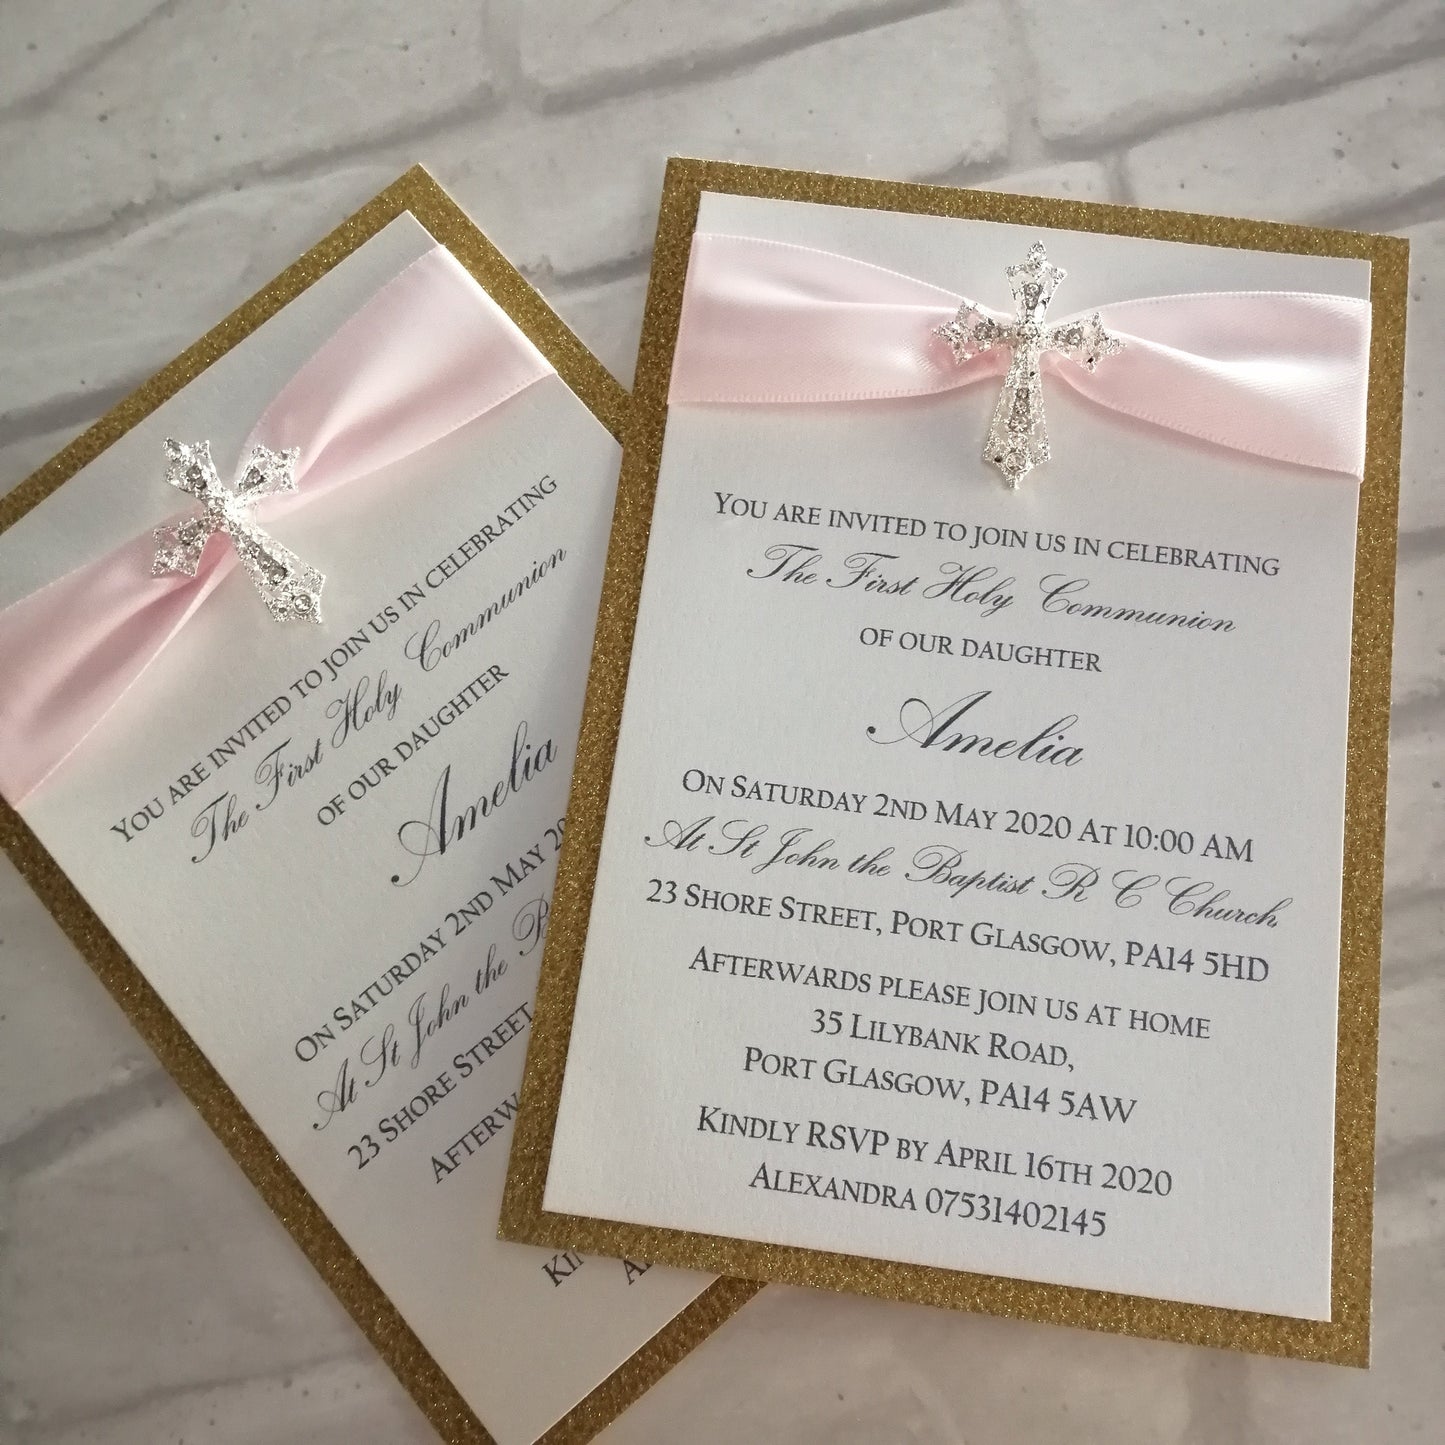 You are invited to join us in celebrating
The First Holy Communion
of our daughter
Amelia
On Saturday 2nd May 20
At St John the B
23 Shore Street
Afterw
Ki
A
You are invited to join us in celebrating
The First Holy Communion
of our daughter
Amelia
On Saturday 2nd May 2020 At 10:00 AM
At St John the Baptist R C Church,
23 Shore Street, Port Glasgow, PA14 5HD
Afterwards please join us at home
35 Lilybank Road,
Port Glasgow, PA14 5AW
Kindly RSVP by April 16th 2020
Alexandra 07531402145